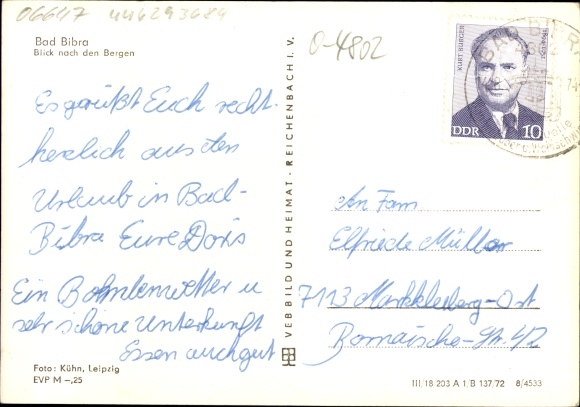 06647 446293684
Bad Bibra
Blick nach den Bergen
0-4802
Es grüßt Euch recht
herzlich aus den
Urlaub in Bad-
Bibra Eure Doris
Ein Bombenwetter u
sehr schöne Unterkunft
Essen auch gut
Foto: Kühn, Leipzig
EVP M –,25
VEB BILD UND HEIMAT · REICHENBACH I. V.
KURT BÜRGER
DDR 10
BAD BIBRA
An Fam
Elfriede Müller
7113 Markkleeberg-Ost
Str. 42
III/18 203 A 1/B 137/72 8/4533